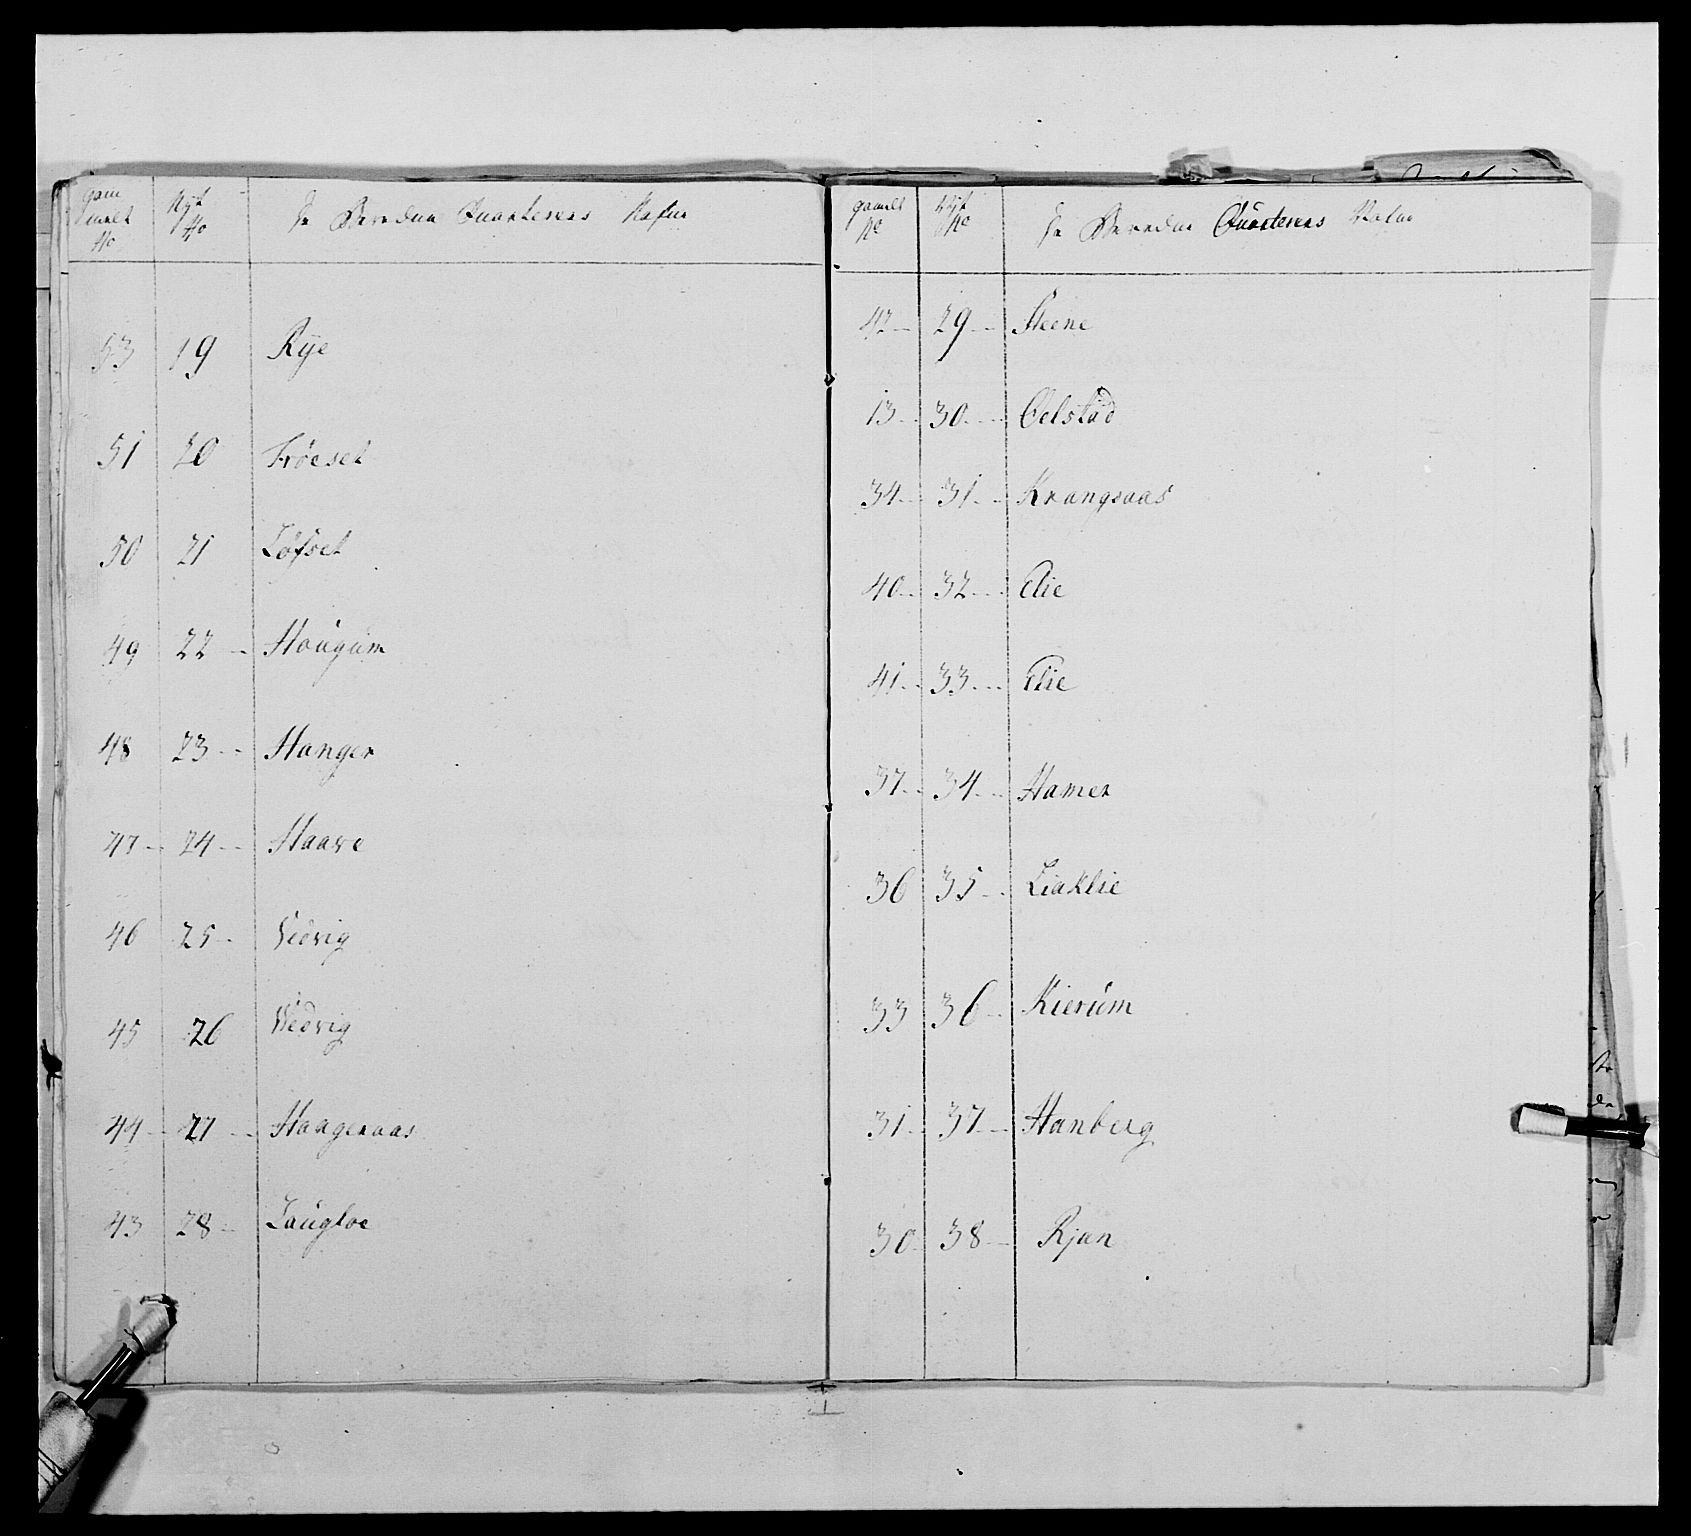 gam
melt
No
Nyt
No
De Beredne Quarterers Nafne
53 19 Rÿe
51 20 Fröeset
50 21 Löfset
49 22 Hougum
48 23 Hanger
47 24 Haave
46 25 Vedvig
45 26 Vedvig
44 27 Haageraas
43 28 Laugloe
gamelt
No
Nyt
No
De Beredne Quarterers Nafne
42 29 Steene
13 30 Oelstad
34 31 Krangsaas
40 32 Elie
41 33 Elie
37 34 Hamer
36 35 Liaklie
33 36 Kierum
31 37 Hanberg
30 38 Rjan